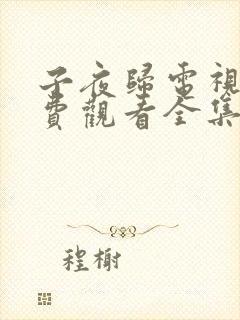 子夜歸電視
費觀看全集
程榭